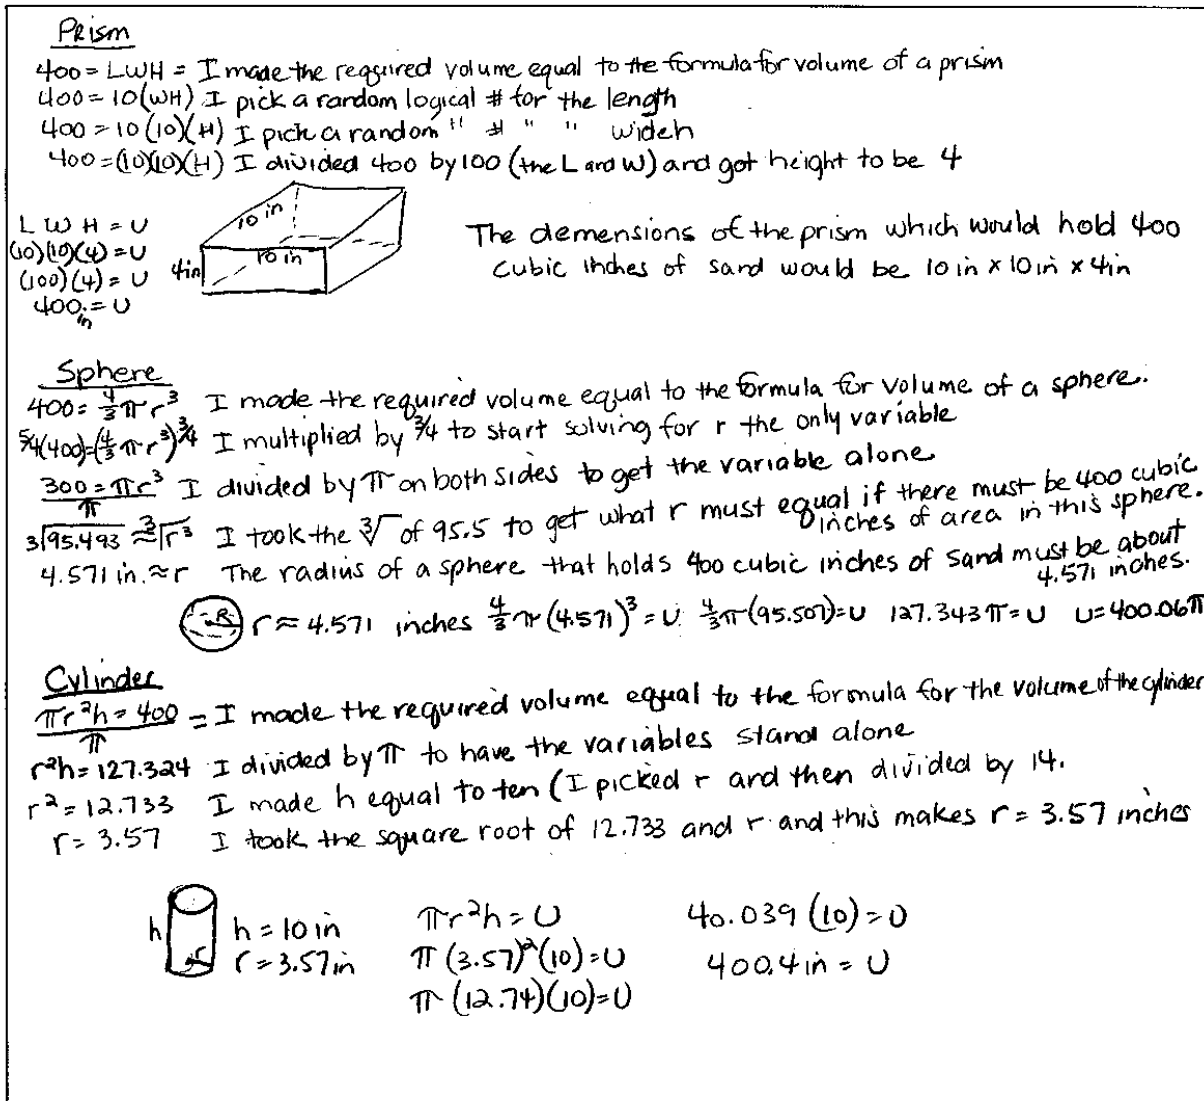 Prism
400 = LWH = I made the required volume equal to the formula for volume of a prism
400 = 10(WH) I pick a random logical # for the length
400 = 10(10)(H) I pick a random " # " " wideh
400 = (10)(10)(H) I divided 400 by 100 (the L and W) and got height to be 4
L W H = U
(10)(10)(4) = U
(100)(4) = U
400 in = U
10 in
10 in
4in
The demensions of the prism which would hold 400
cubic inches of sand would be 10 in x 10 in x 4in
Sphere
400 = 4/3 π r³ I made the required volume equal to the formula for volume of a sphere.
5/4(400) = (4/3 π r³)3/4 I multiplied by 3/4 to start solving for r the only variable
300 = πr³ I divided by π on both sides to get the variable alone
π
3√95.493 ≈ ³√r³ I took the ³√ of 95.5 to get what r must equal if there must be 400 cubic
inches of area in this sphere.
4.571 in. ≈ r The radius of a sphere that holds 400 cubic inches of sand must be about
4.571 inches.
R r ≈ 4.571 inches 4/3 π (4.571)³ = U 4/3 π (95.507) = U 127.343 π = U U = 400.06π
Cylinder
πr²h = 400 = I made the required volume equal to the formula for the volume of the cylinder
π
r²h = 127.324 I divided by π to have the variables stand alone
r² = 12.733 I made h equal to ten (I picked r and then divided by 14.
r = 3.57 I took the square root of 12.733 and r and this makes r = 3.57 inches
h
r
h = 10 in
r = 3.57 in
πr²h = U
π (3.57)²(10) = U
π (12.74)(10) = U
40.039 (10) = U
400.4 in = U